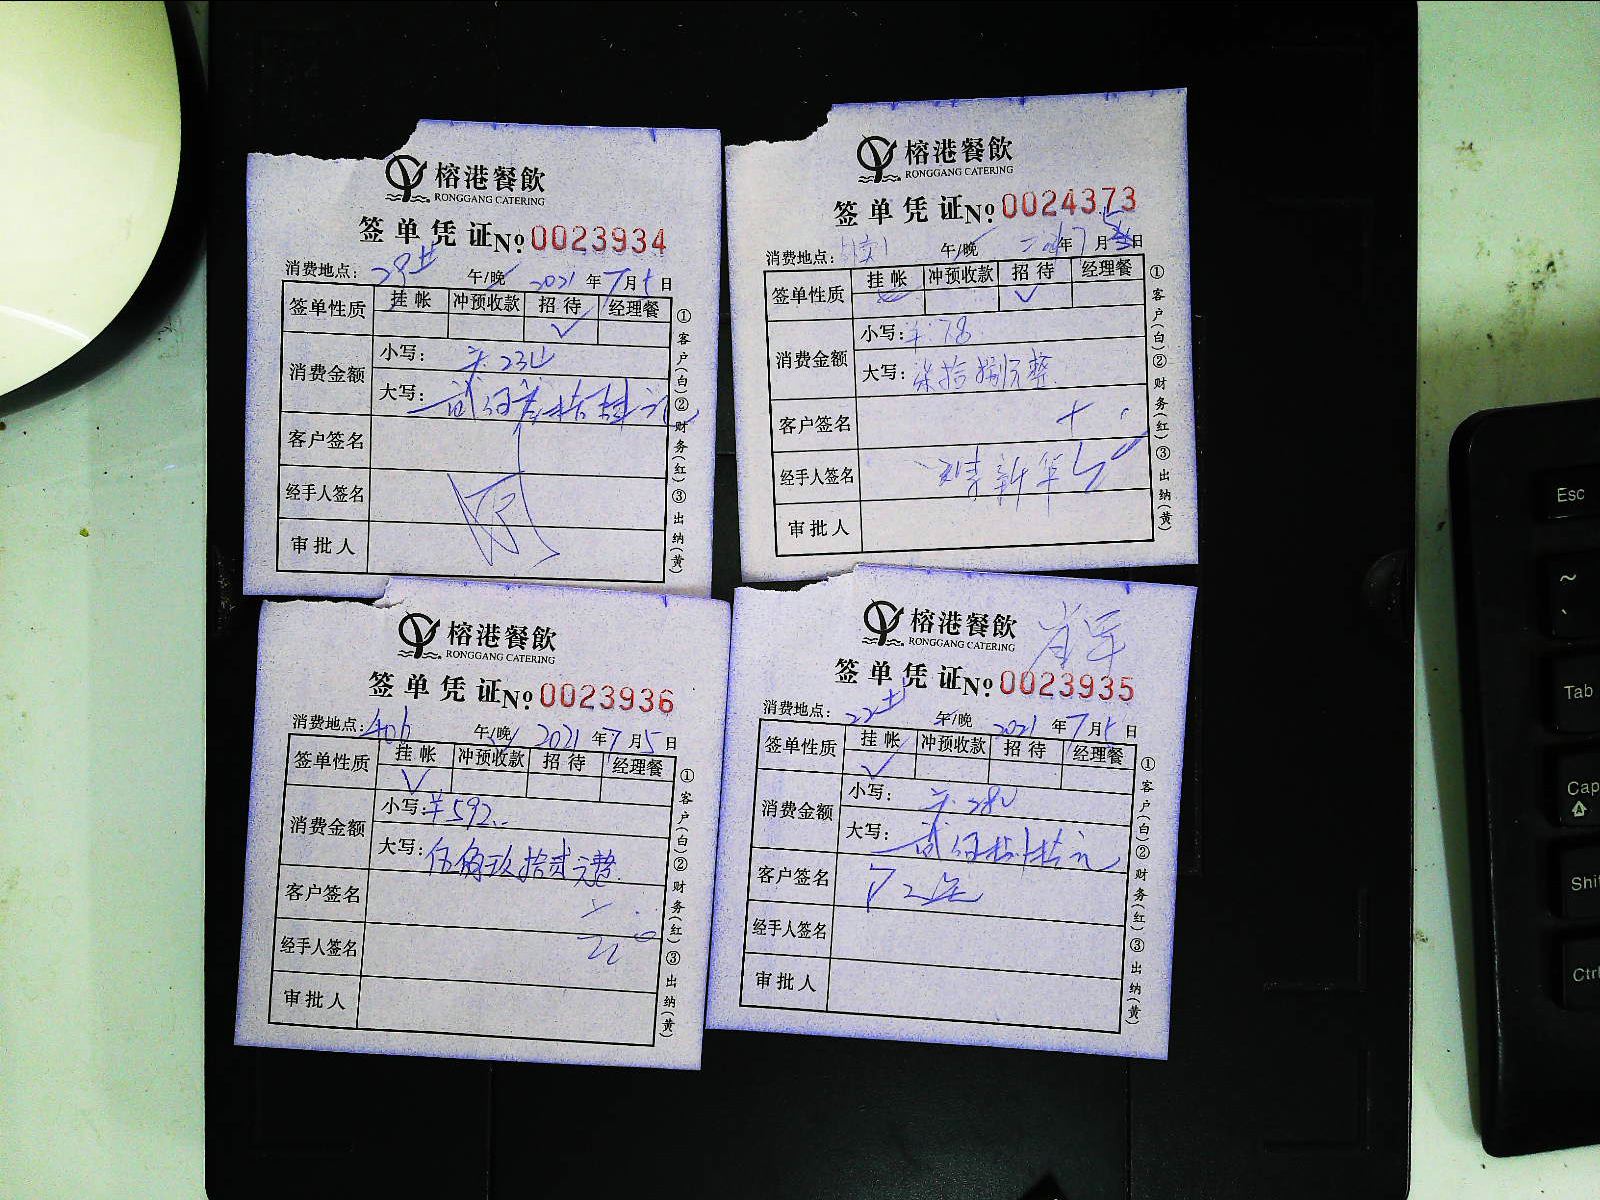 榕港餐飲
RONGGANG CATERING
签单凭证 No 0023934
消费地点: 午/晚 2021年7月 日
签单性质 挂帐 冲预收款 招待 经理餐
✓
消费金额
小写:
大写:
客户签名
经手人签名
审批人
①客户(白)②财务(红)③出纳(黄)
榕港餐飲
RONGGANG CATERING
签单凭证 No 0024373
消费地点: 午/晚 年7月 日
签单性质 挂帐 冲预收款 招待 经理餐
✓
消费金额
小写: ¥:78
大写: 柒拾捌元整
客户签名
经手人签名
审批人
①客户(白)②财务(红)③出纳(黄)
榕港餐飲
RONGGANG CATERING
签单凭证 No 0023936
消费地点: 406 午/晚 2021年7月5日
签单性质 挂帐 冲预收款 招待 经理餐
✓
消费金额
小写: ¥592
大写: 伍佰玖拾贰元整
客户签名
经手人签名
审批人
①客户(白)②财务(红)③出纳(黄)
榕港餐飲
RONGGANG CATERING
签单凭证 No 0023935
消费地点: 午/晚 2021年7月 日
签单性质 挂帐 冲预收款 招待 经理餐
✓
消费金额
小写:
大写:
客户签名
经手人签名
审批人
①客户(白)②财务(红)③出纳(黄)
Esc
~
`
Tab
Cap
Shi
Ctrl